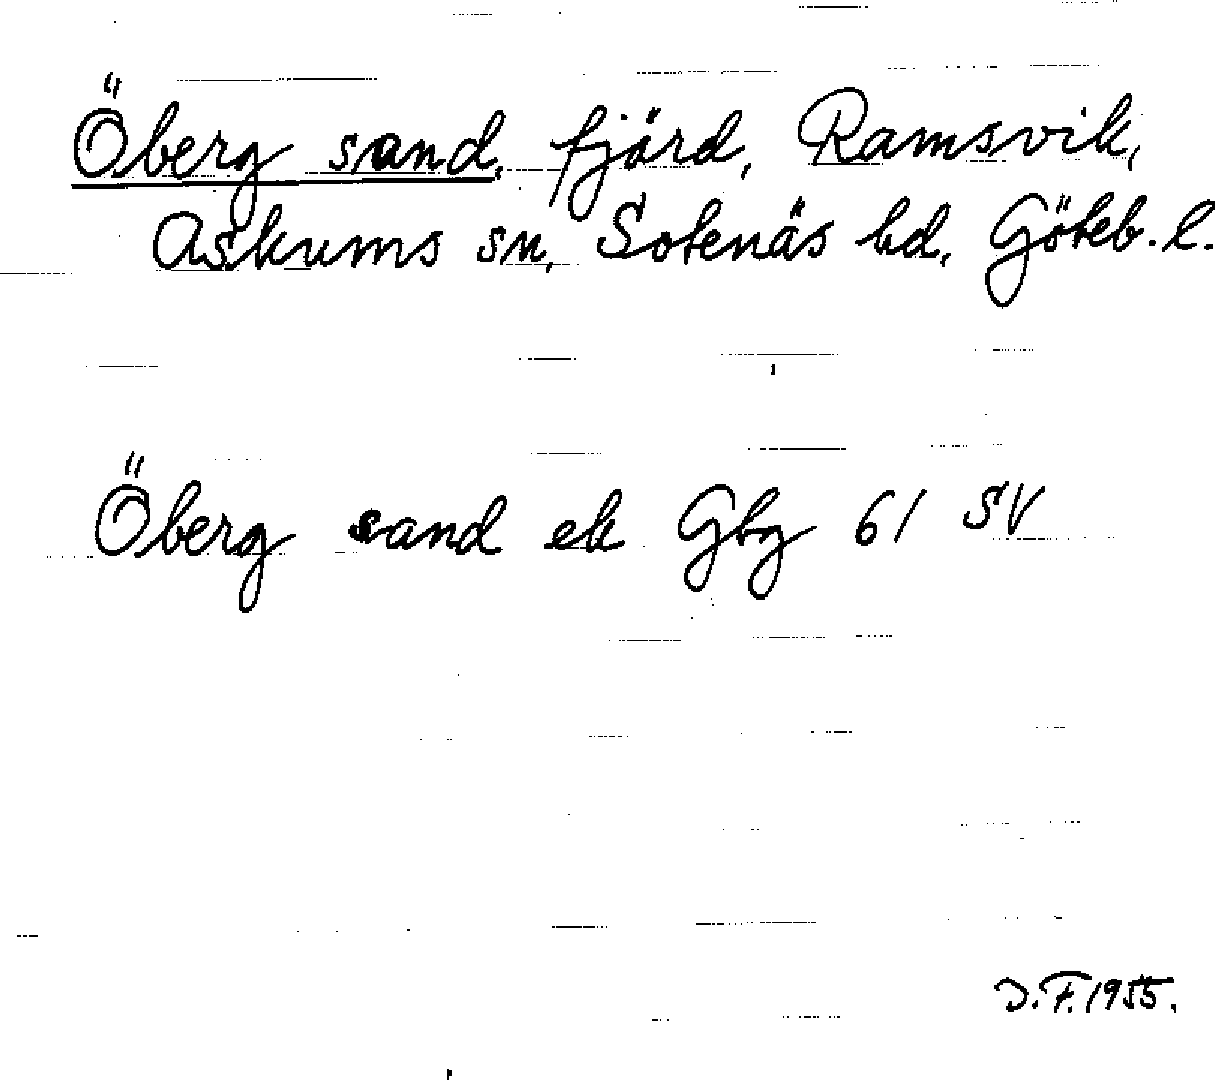 Öberg sand, fjärd, Ramsvik,
Askums sn, Sotenäs hd, Göteb. l.
Öberg sand ek Gbg 61 SV
D.F. 1955.